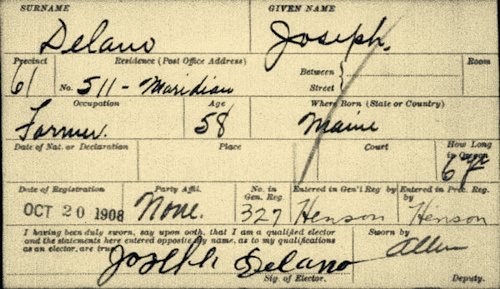 SURNAME GIVEN NAME
Delano Joseph.
Precinct Residence (Post Office Address) Between Room
61 No. 511 - Meridian Street
Occupation Age Where Born (State or Country)
Farmer. 58 Maine
Date of Nat. or Declaration Place Court How Long
Date of Registration Party Affil. No. in Gen. Reg. Entered in Gen'l Reg. by Entered in Prec. Reg. by
OCT 20 1908 None. 327 Henson Henson
I having been duly sworn, say upon oath, that I am a qualified elector Sworn by
and the statements here entered opposite my name, as to my qualifications Allen
as an elector, are true.
Joseph Delano
Sig. of Elector. Deputy.